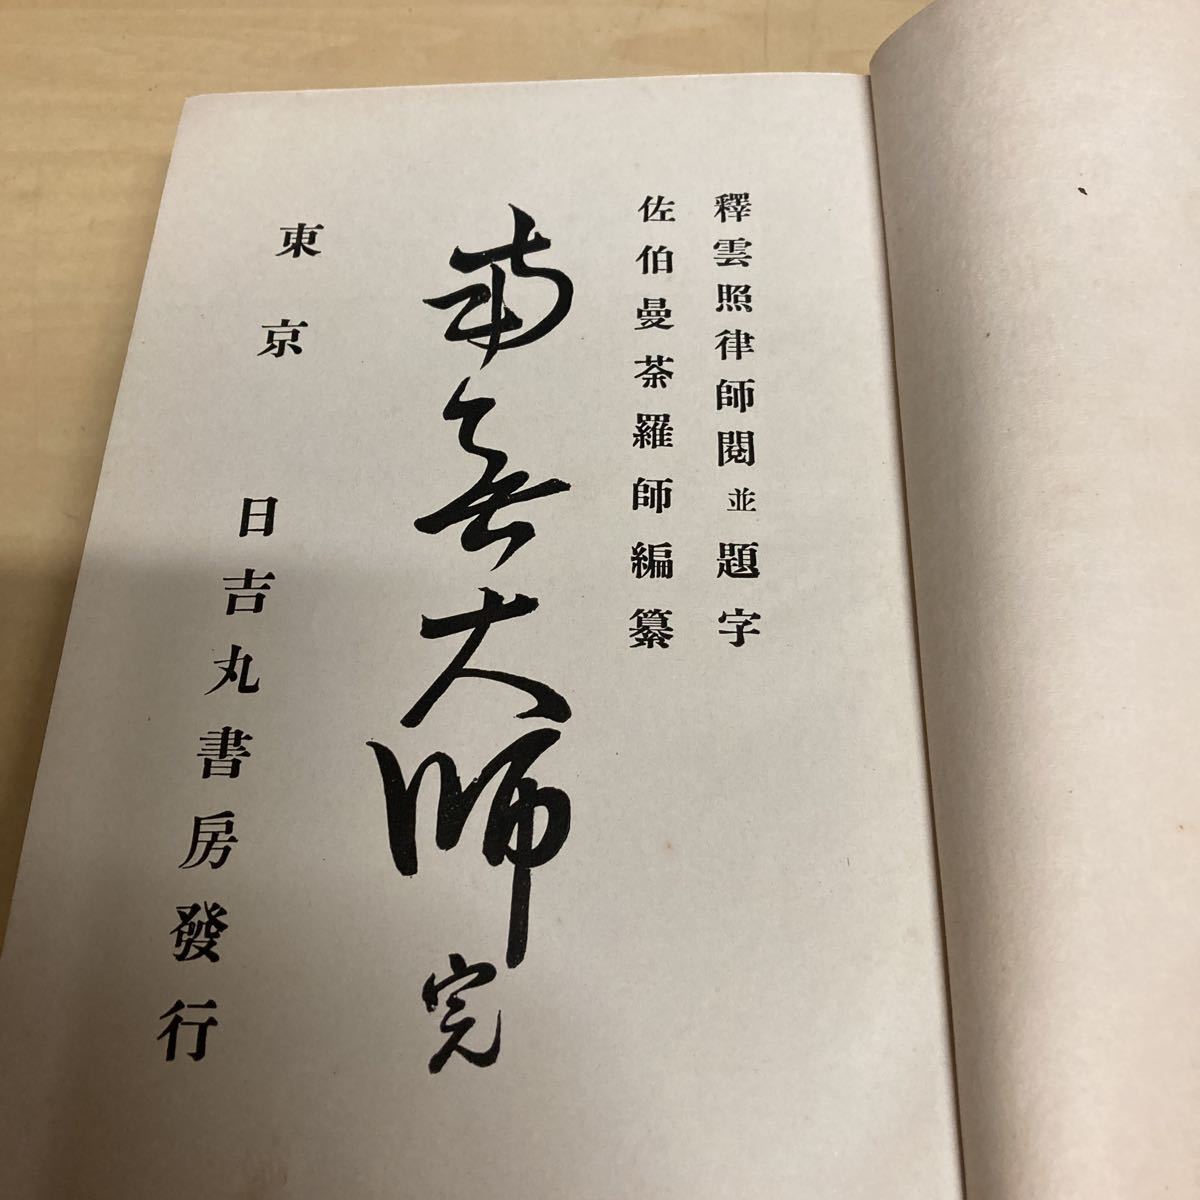 釋雲照律師閱並題字
佐伯曼荼羅師編纂
南無大師完
東京
日吉丸書房發行